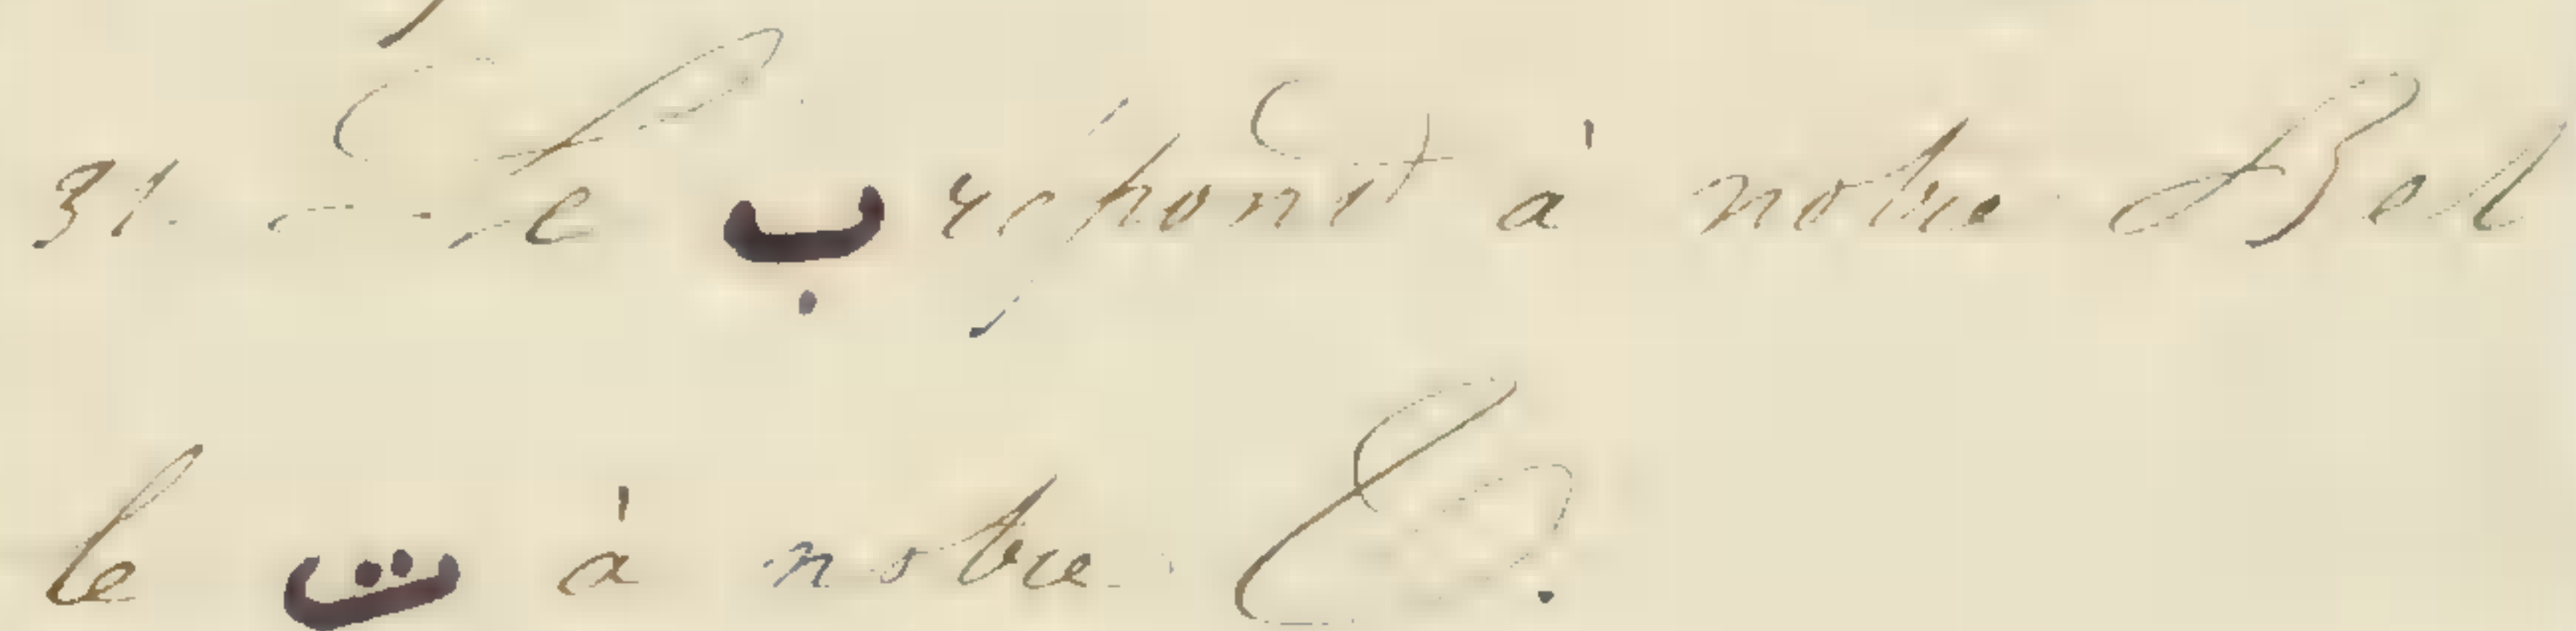 31. Le ب répond à notre B et
le ت à notre T.